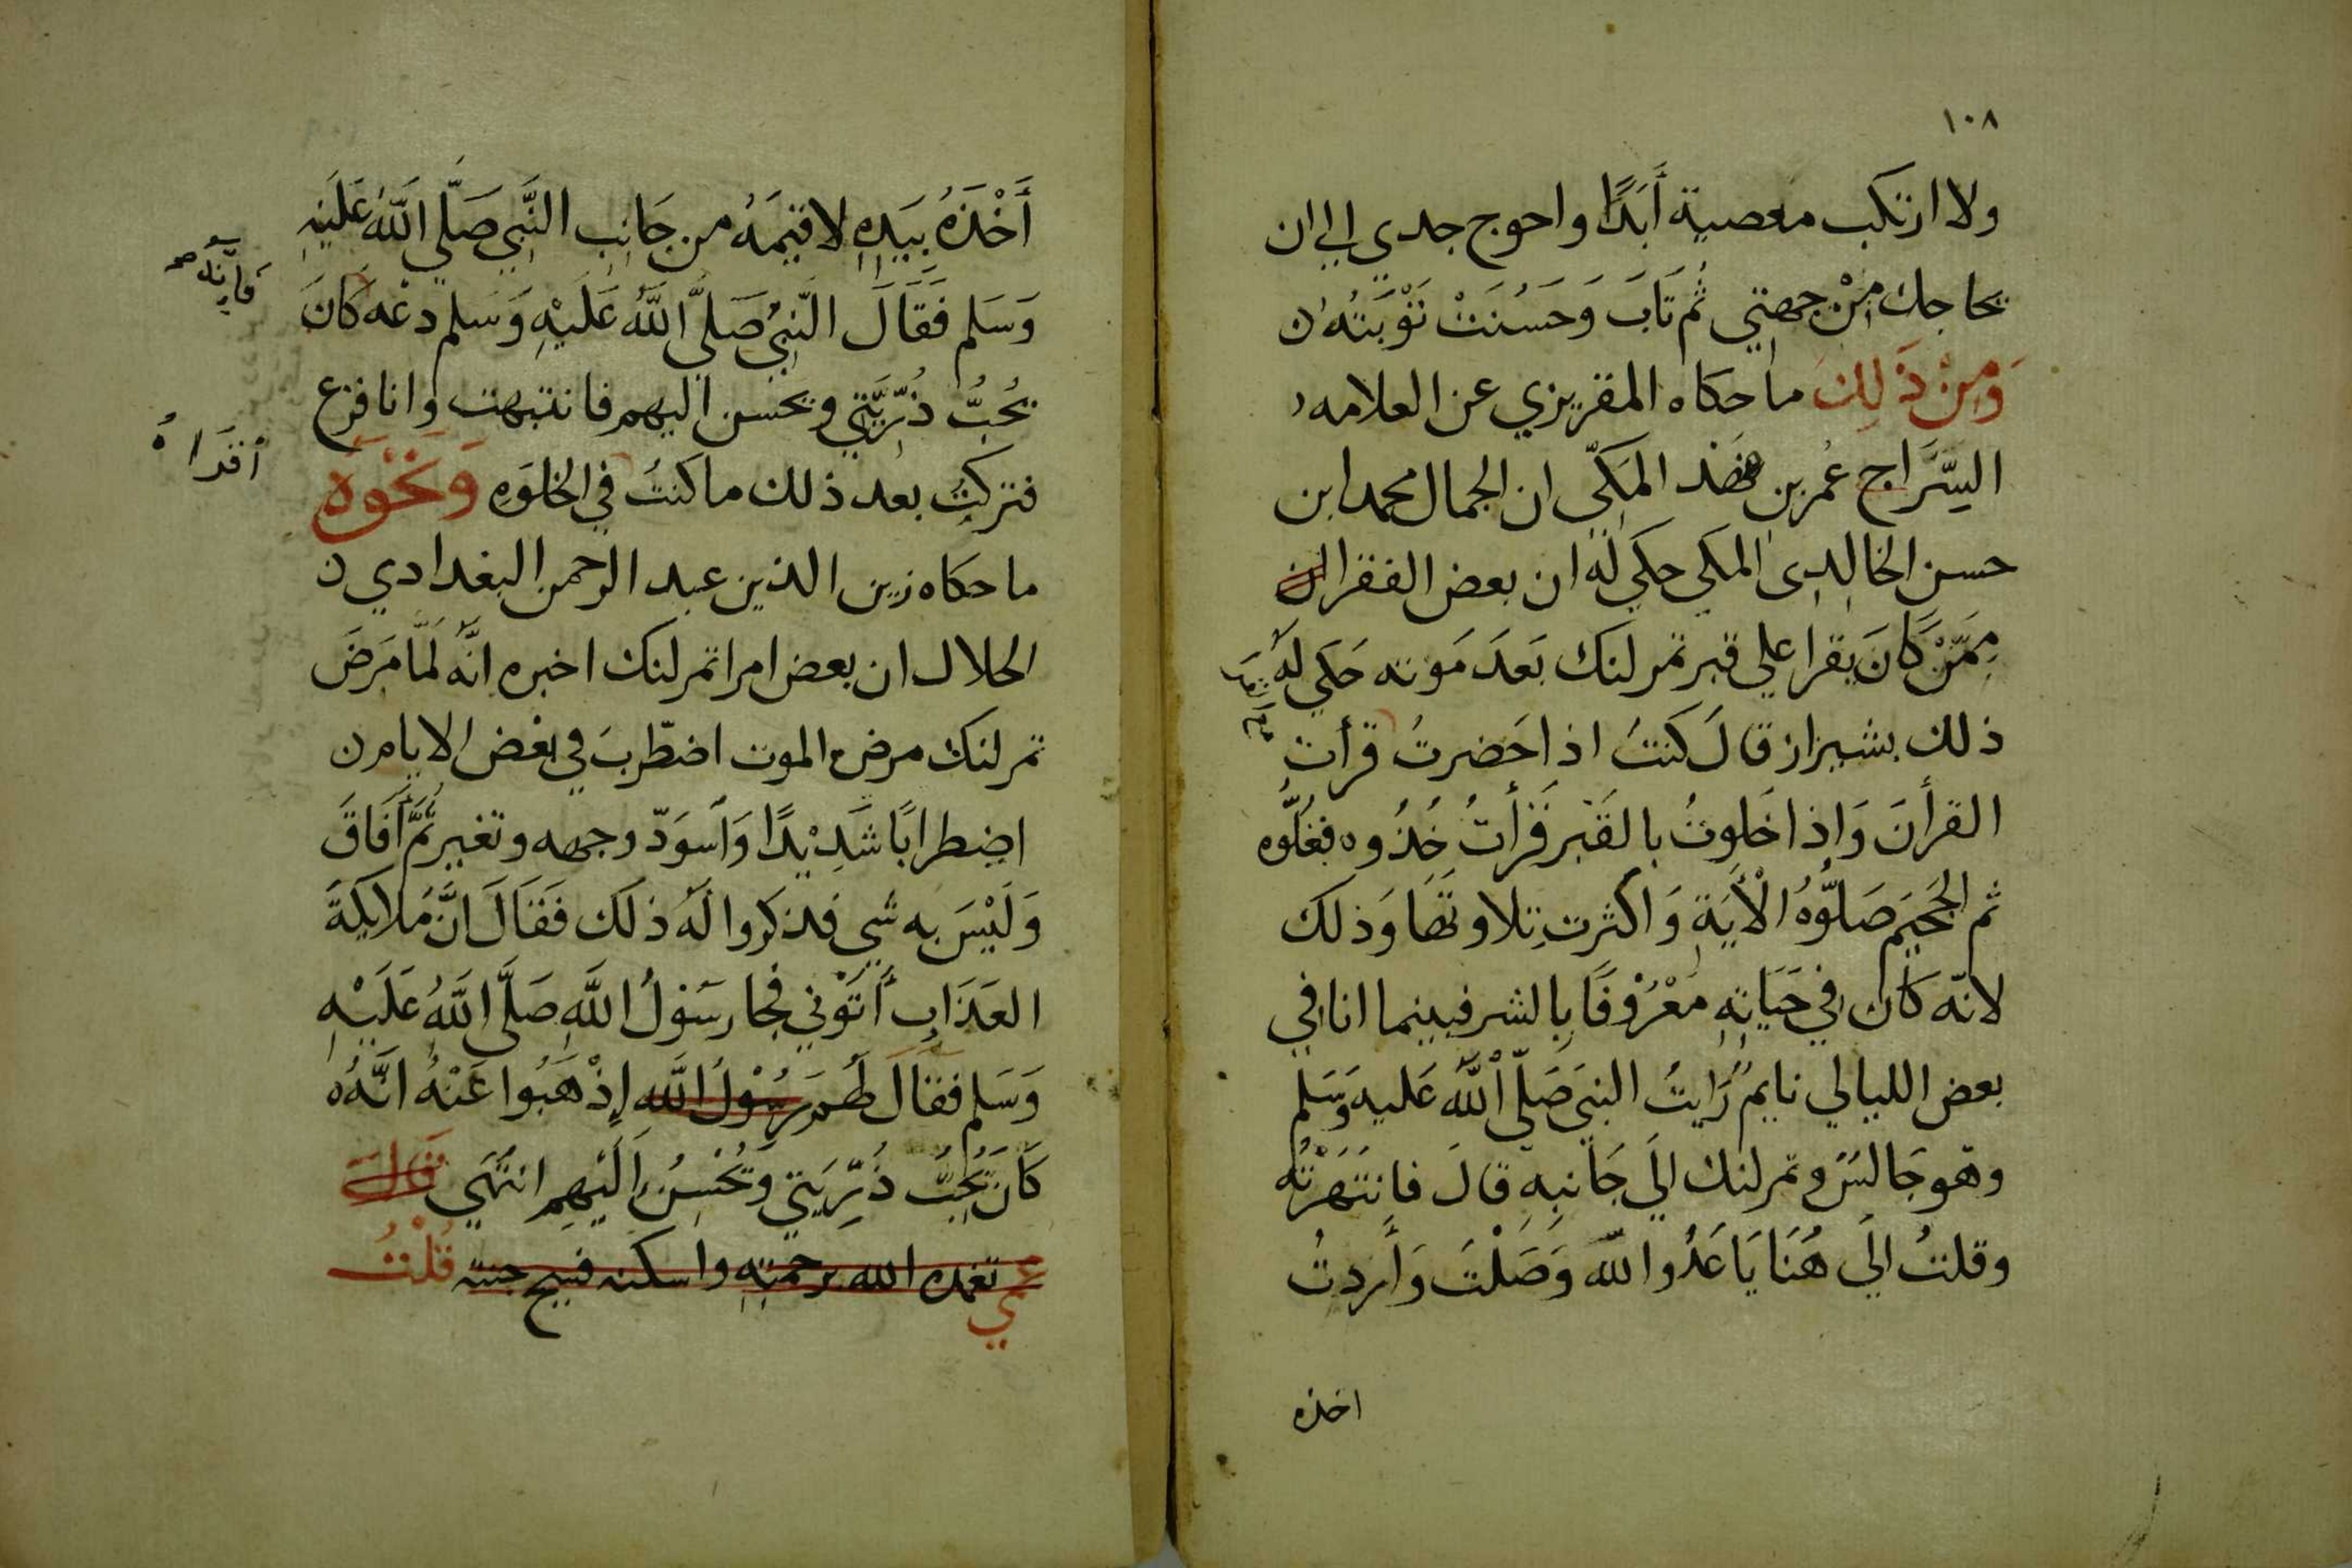 ١٠٨
ولا ارتكب معصية أَبَدًا واحوج جدي الي ان
يحاجك مِنْ جهتي ثُم تَابَ وَحَسُنَتْ تَوْبَتُه ن
وَمِنْ ذَلِكَ ما حكاه المقريزي عن العلامه
السِّرَاج عُمر بن فهد المَكّي ان الجمال محمد ابن
حسن الخالدى المكي حكي لَه ان بعض الفقرا
مِمَّنْ كَانَ يقرا علي قبر تمرلنك بَعدَ مَوته حَكي لَهُ
ذلك بشيراز قالَ كنتُ اذا حَضرتُ قرأت
القرأنَ وَاِذا خَلوتُ بالقَبْر قَرأتُ خُذُوه فغُلُّوه
ثم الجَحَيمَ صَلُّوُهُ الْأَيَةِ وَاكثرت تِلاوتَهَا وَذلك
لانّه كَانَ في حَيَاتِهِ مَعْرُوْفًا بِالشر فبينما انا في
بعض الليالي نايمُ رَايتُ النبيَ صَلّي اللّهُ عَليهِ وَسَلم
وهو جَالسٌ و تمرلنك الَي جَانبهِ قالَ فانتَهَرْتُه
وقلتُ الَي هُنَا يَا عَدُوا للّه وَصَلْتَ وَأَردتُ
اخذه
أَخْذَهُ بِيَدِهِ لاقيمَهُ من جَانِب النَّبِي صَلَّي اللَّهُ عَلَيَهِ
وَسَلم فَقَالَ النَّبِيُ صَلَّي اللَّهُ عَلَيْهِ وَسَلم دعْه كَانَ
فَاِنَّهُ صح
يُحِبُّ ذُرِّيَّتِي ويحسن اليهم فانتبهت وانا فزع
فتركتُ بعد ذلك ما كنتُ في الخلوَهِ وَنَحْوَهُ
ما حكاه زين الذين عبد الرحمن البغدادي ن
الحلال ان بعض امرا تمرلنك اخبره انَّه لَمَّا مَرَضَ
تمرلنك مرض الموت اضطّربَ في بَعْض الايام ن
اضِطرابًا شَدِيْدًا وَاَسوَدّ وجهه وتغير ثُمَّ أَفَاقَ
وَلَيْسَ به شَي فذكروا لَهُ ذلَك فَقَالَ انَّ مَلايكةَ
العَذَابِ أَتَوْنِي فجا رسَوْلُ اللَّهِ صَلَّي اللَّهُ عَلَيْهِ
وَسَلم فقالَ لَهُم رسُوْلُ اللَّهِ اِذْهَبُوا عَنْهُ انَّهُ
كَانَ يُحِبُّ ذُرِّيَتِي وَيُحْسِنُ اِلَيْهِم انتَهَي قال
عمي تغمده الله برحمته واسكنه فسيح جنته قُلْتُ